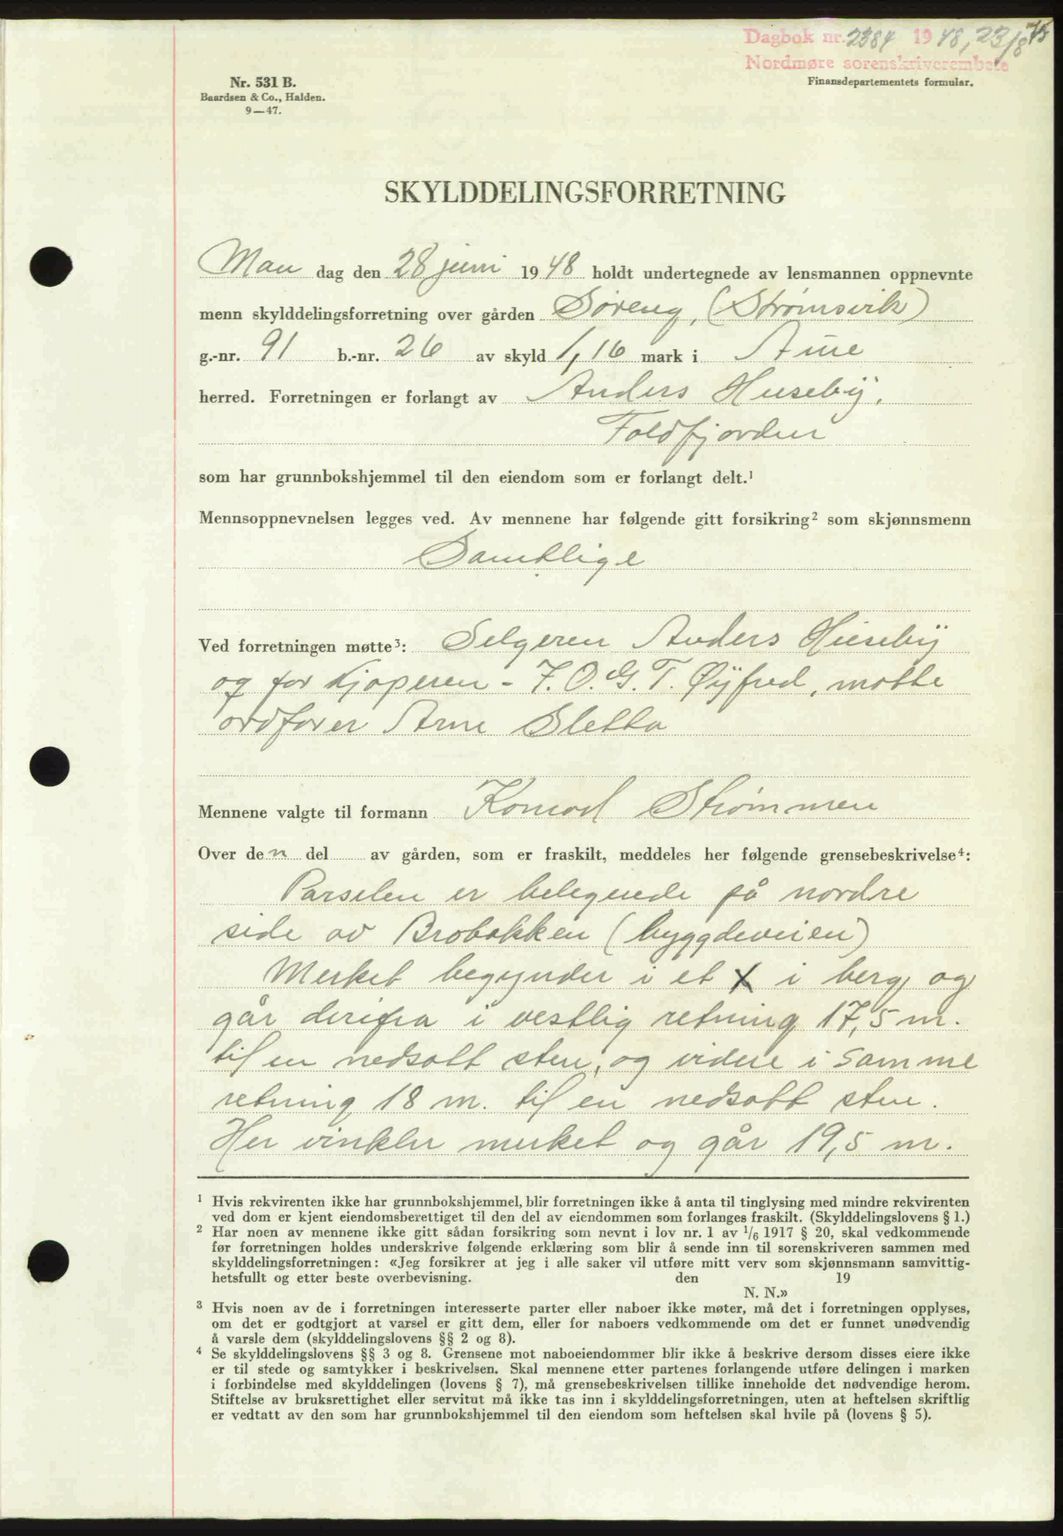 Dagbok nr. 2384 1948, 23/8 75
Nordmøre sorenskriverembete
Finansdepartementets formular.
Nr. 531 B.
Baardsen & Co., Halden.
9—47.
SKYLDDELINGSFORRETNING
Man dag den 28 juni 1948 holdt undertegnede av lensmannen oppnevnte
menn skylddelingsforretning over gården Søreng, (Strømsvik)
g.-nr. 91 b.-nr. 26 av skyld 1,16 mark i Aure
herred. Forretningen er forlangt av Anders Huseby,
Foldfjorden
som har grunnbokshjemmel til den eiendom som er forlangt delt.¹
Mennsoppnevnelsen legges ved. Av mennene har følgende gitt forsikring² som skjønnsmenn
Samtlige
Ved forretningen møtte³: Selgeren Anders Huseby
og for kjøperen - I.O.G.T. Øyfred, møtte
ordfører Arne Sletta
Mennene valgte til formann Konrad Strømmen
Over den del av gården, som er fraskilt, meddeles her følgende grensebeskrivelse⁴:
Parselen er belegende på nordre
side av Brobakken (byggdeveien)
Merket begynder i et X i berg og
går derifra i vestlig retning 17,5 m.
til en nedsatt sten, og videre i samme
retning 18 m. til en nedsatt sten.
Her vinkler merket og går 19,5 m.
¹ Hvis rekvirenten ikke har grunnbokshjemmel, blir forretningen ikke å anta til tinglysing med mindre rekvirenten
ved dom er kjent eiendomsberettiget til den del av eiendommen som forlanges fraskilt. (Skylddelingslovens § 1.)
² Har noen av mennene ikke gitt sådan forsikring som nevnt i lov nr. 1 av 1/6 1917 § 20, skal vedkommende
før forretningen holdes underskrive følgende erklæring som blir å sende inn til sorenskriveren sammen med
skylddelingsforretningen: «Jeg forsikrer at jeg i alle saker vil utføre mitt verv som skjønnsmann samvittig-
hetsfullt og etter beste overbevisning. den 19
N. N.»
³ Hvis noen av de i forretningen interesserte parter eller naboer ikke møter, må det i forretningen opplyses,
om det er godtgjort at varsel er gitt dem, eller for naboers vedkommende om det er funnet unødvendig
å varsle dem (skylddelingslovens §§ 2 og 8).
⁴ Se skylddelingslovens §§ 3 og 8. Grensene mot naboeiendommer blir ikke å beskrive dersom disses eiere ikke
er til stede og samtykker i beskrivelsen. Skal mennene etter partenes forlangende utføre delingen i marken
i forbindelse med skylddelingen (lovens § 7), må grensebeskrivelsen tillike inneholde det nødvendige herom.
Stiftelse av bruksrettighet eller servitut må ikke tas inn i skylddelingsforretningen, uten at heftelsen skriftlig
er vedtatt av den som har grunnbokshjemmel til den eiendom som heftelsen skal hvile på (lovens § 5).